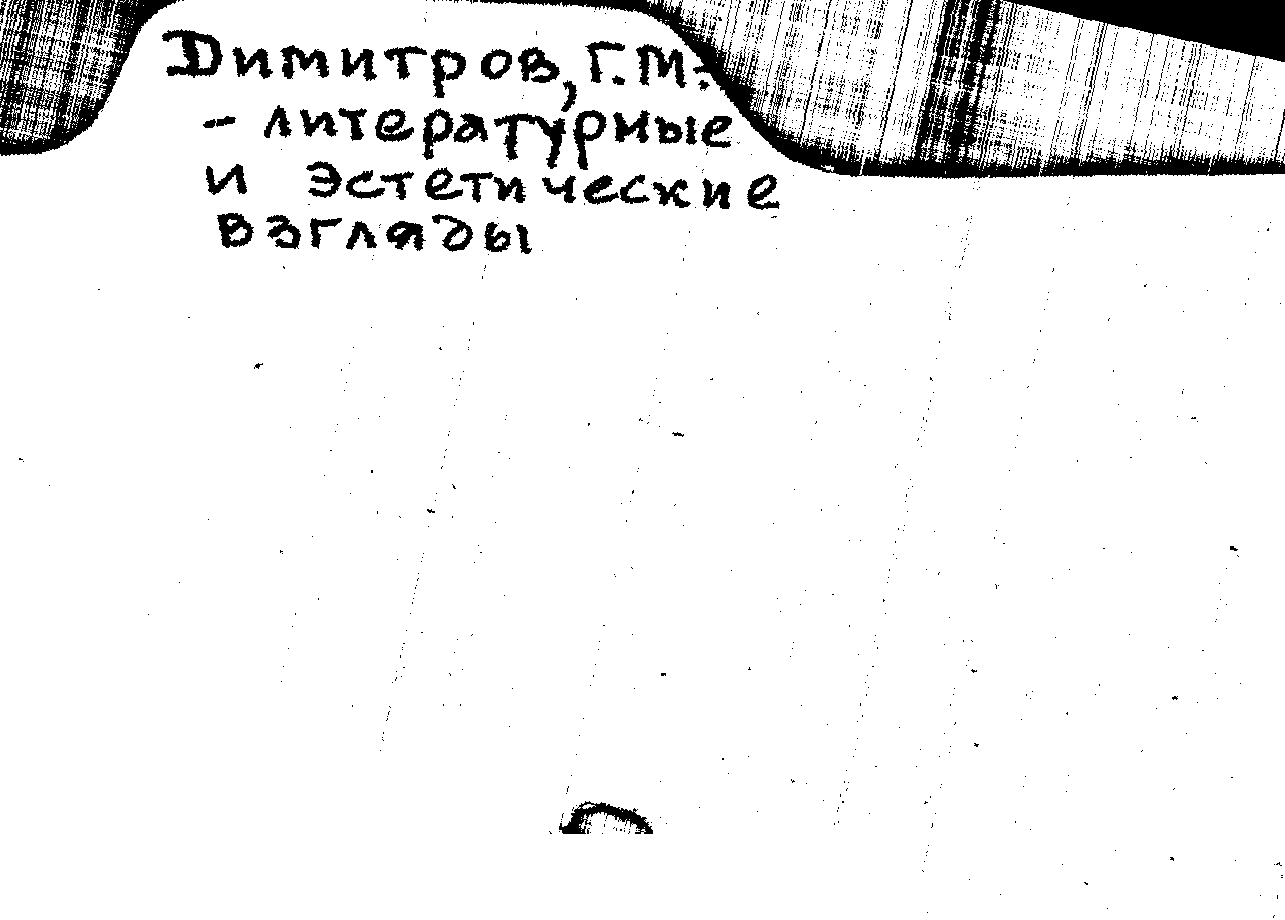 Димитров, Г.М.
- литературные
и эстетические
взгляды